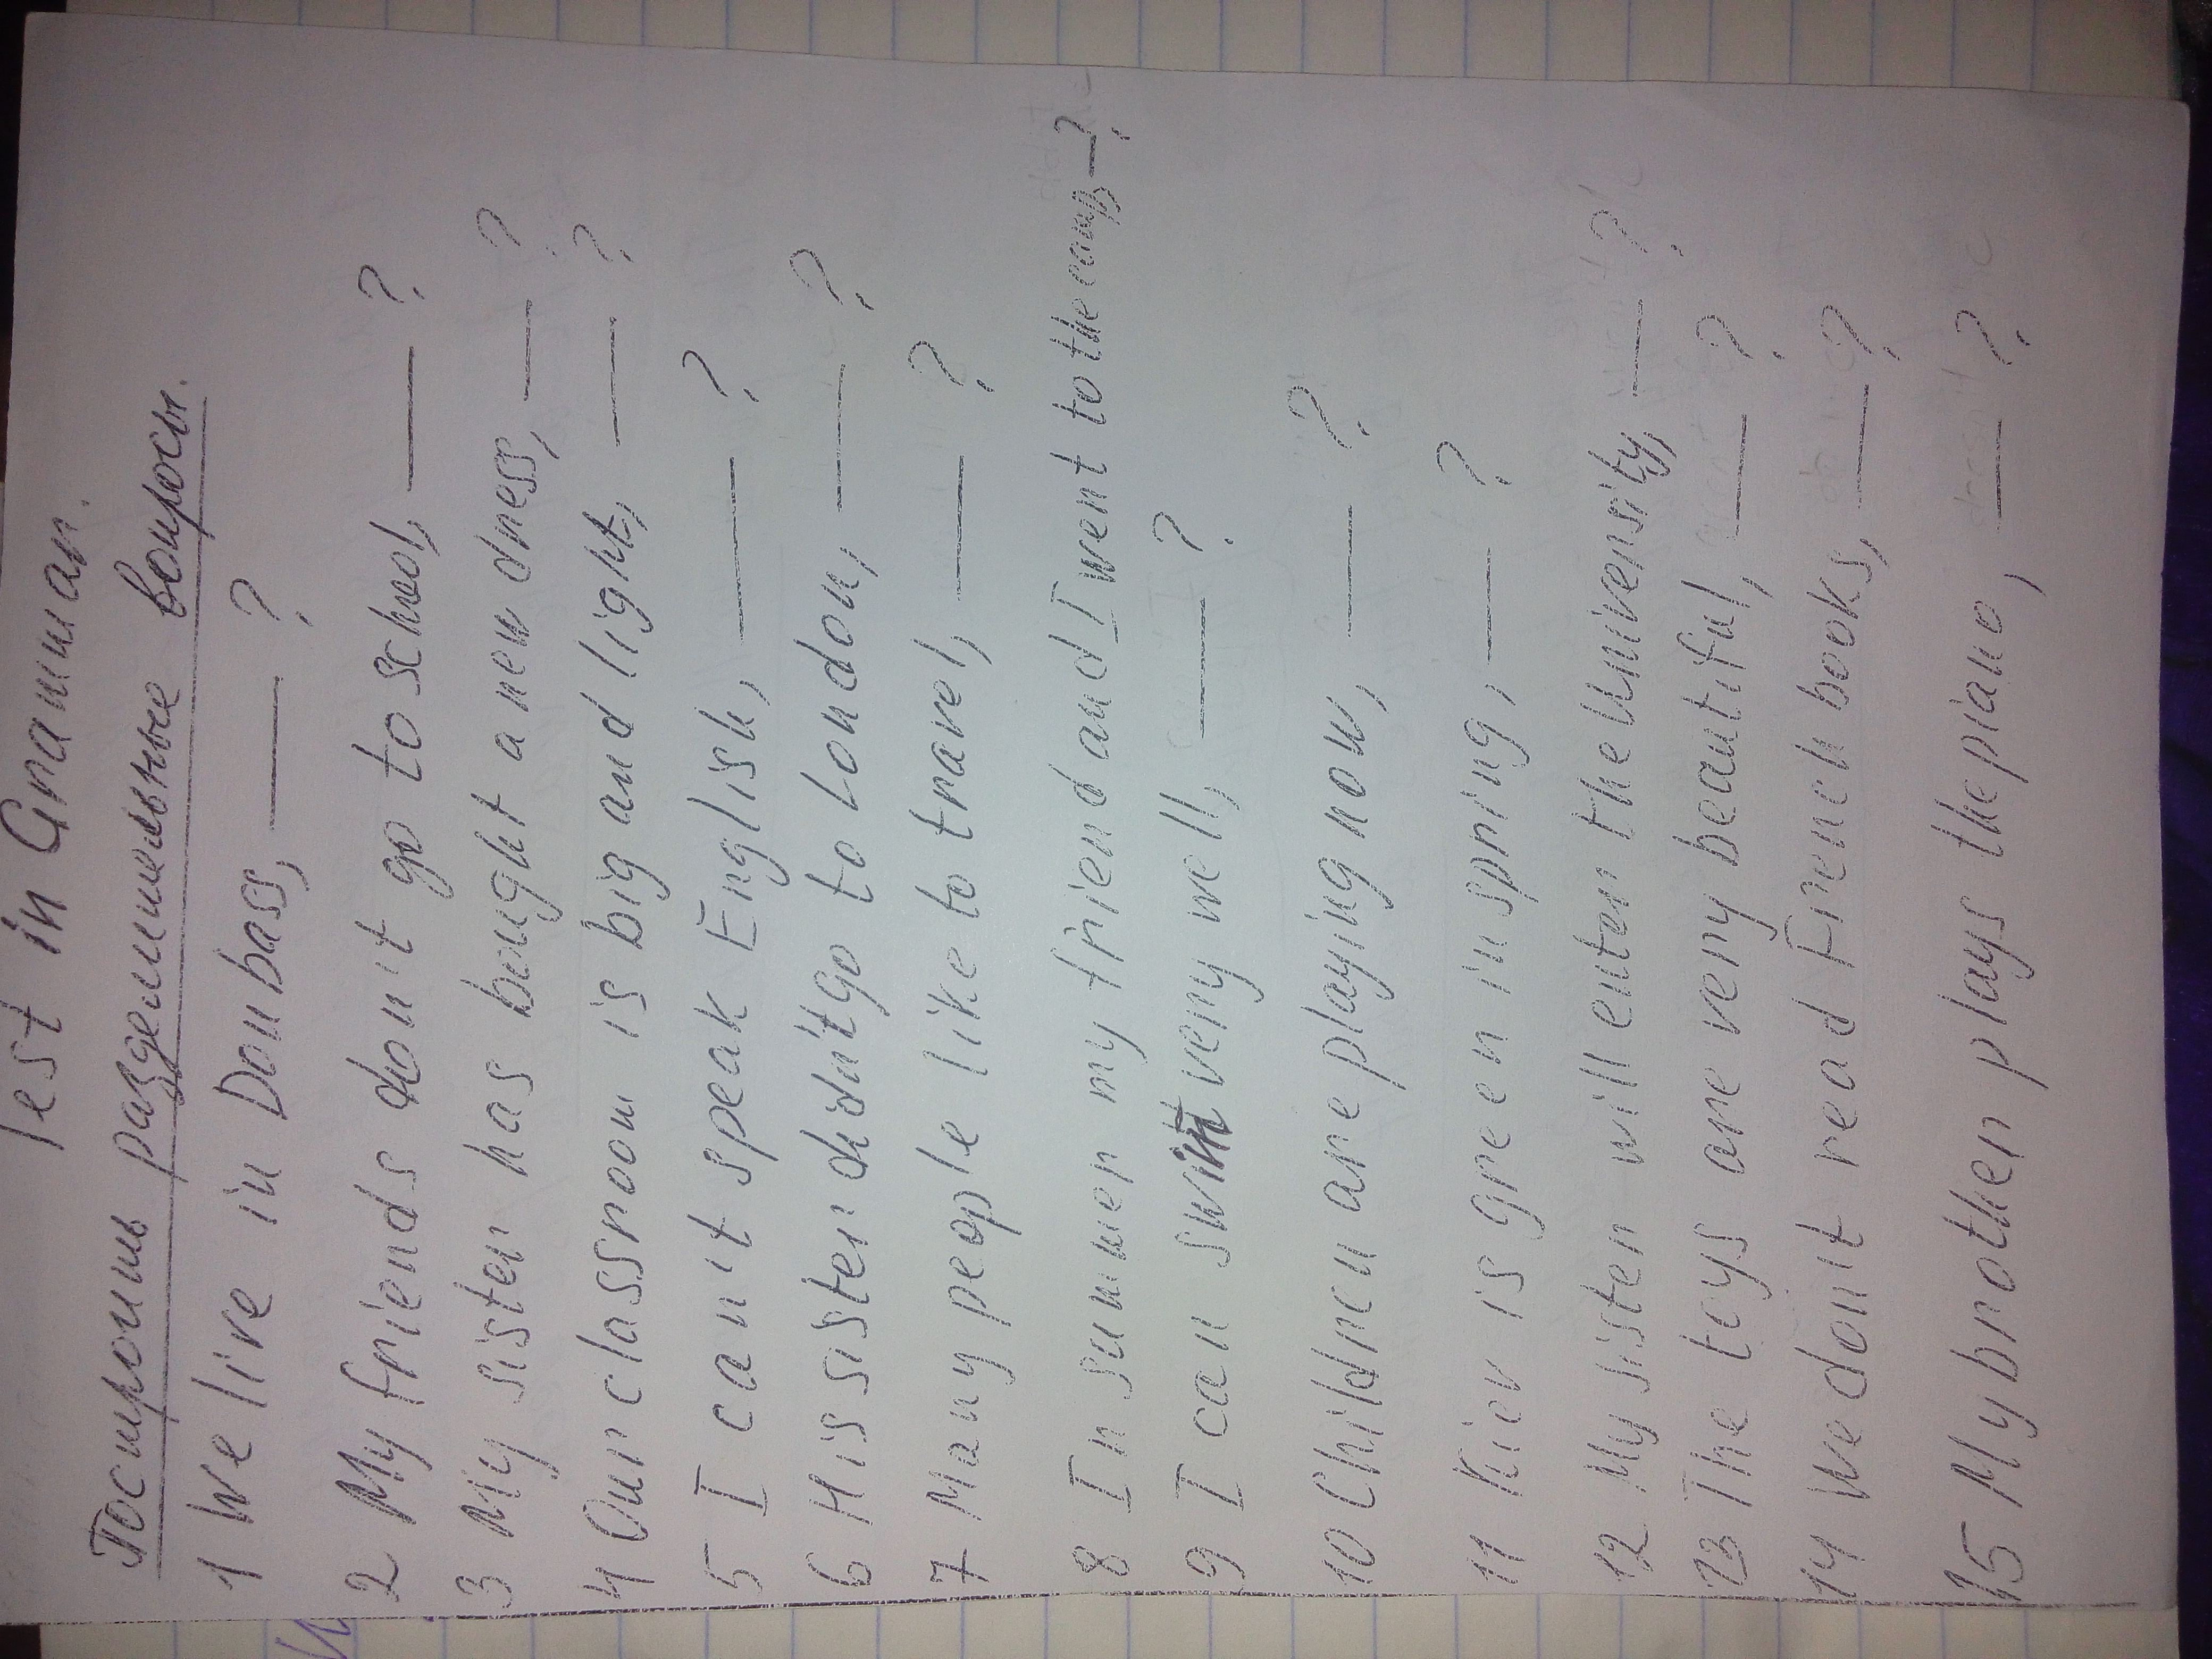 Test in Grammar.
Построить разделительные вопросы.
1 We live in Donbass, ___ ?
2 My friends don't go to school, ___ ?
3 My sister has bought a new dress, ___ ?
4 Our classroom is big and light, ___ ?
5 I can't speak English, ___ ?
6 His sister didn't go to London, ___ ?
7 Many people like to travel, ___ ?
8 In summer my friend and I went to the camp, ___ ?
9 I can swim very well, ___ ?
10 Children are playing now, ___ ?
11 Kiev is green in spring, ___ ?
12 My sister will enter the University, ___ ?
13 The toys are very beautiful, ___ ?
14 We don't read French books, ___ ?
15 My brother plays the piano, ___ ?